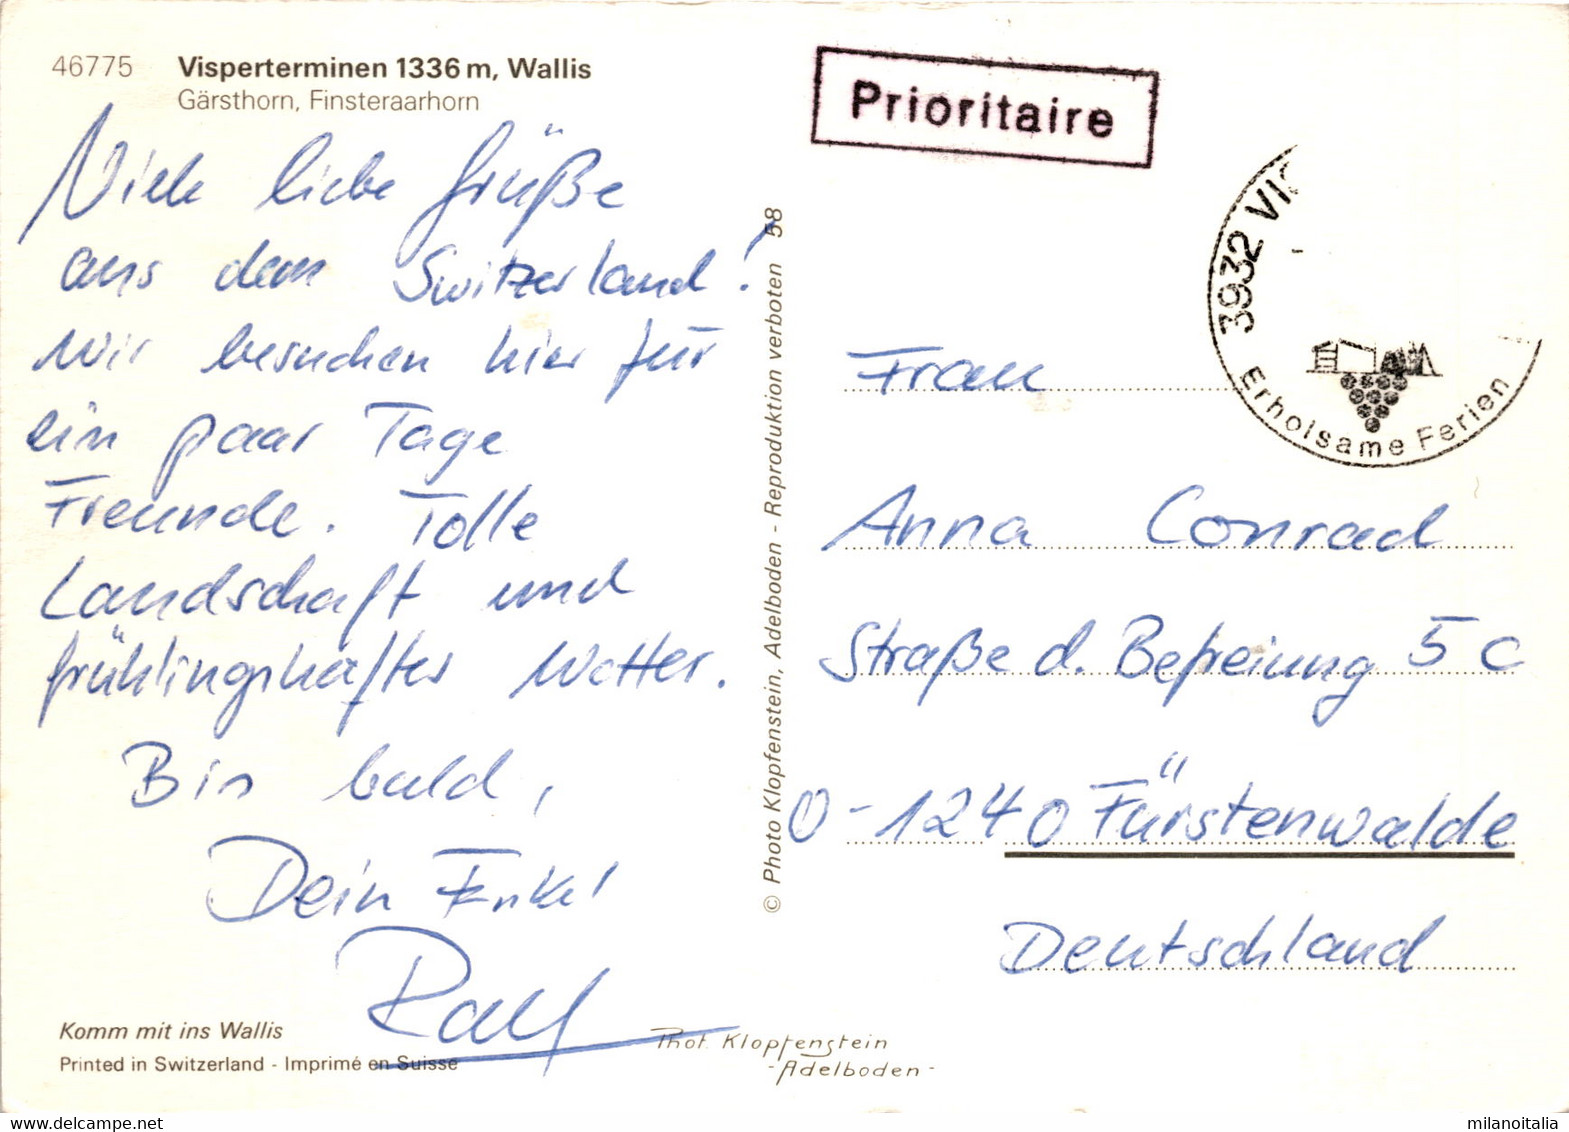 46775 Visperterminen 1336 m, Wallis
Gärsthorn, Finsteraarhorn
Viele liebe Grüße
aus dem Switzerland!
Wir besuchen hier für
ein paar Tage
Freunde. Tolle
Landschaft und
frühlingshaftes Wetter.
Bis bald,
Dein Enkel
Ralf
Komm mit ins Wallis
Printed in Switzerland - Imprimé en Suisse
© Photo Klopfenstein, Adelboden - Reproduktion verboten 58
Phot. Klopfenstein
- Adelboden -
Prioritaire
3932 VIS
Erholsame Ferien
Frau
Anna Conrad
Straße d. Befreiung 5 c
O-1240 Fürstenwalde
Deutschland
milanoitalia